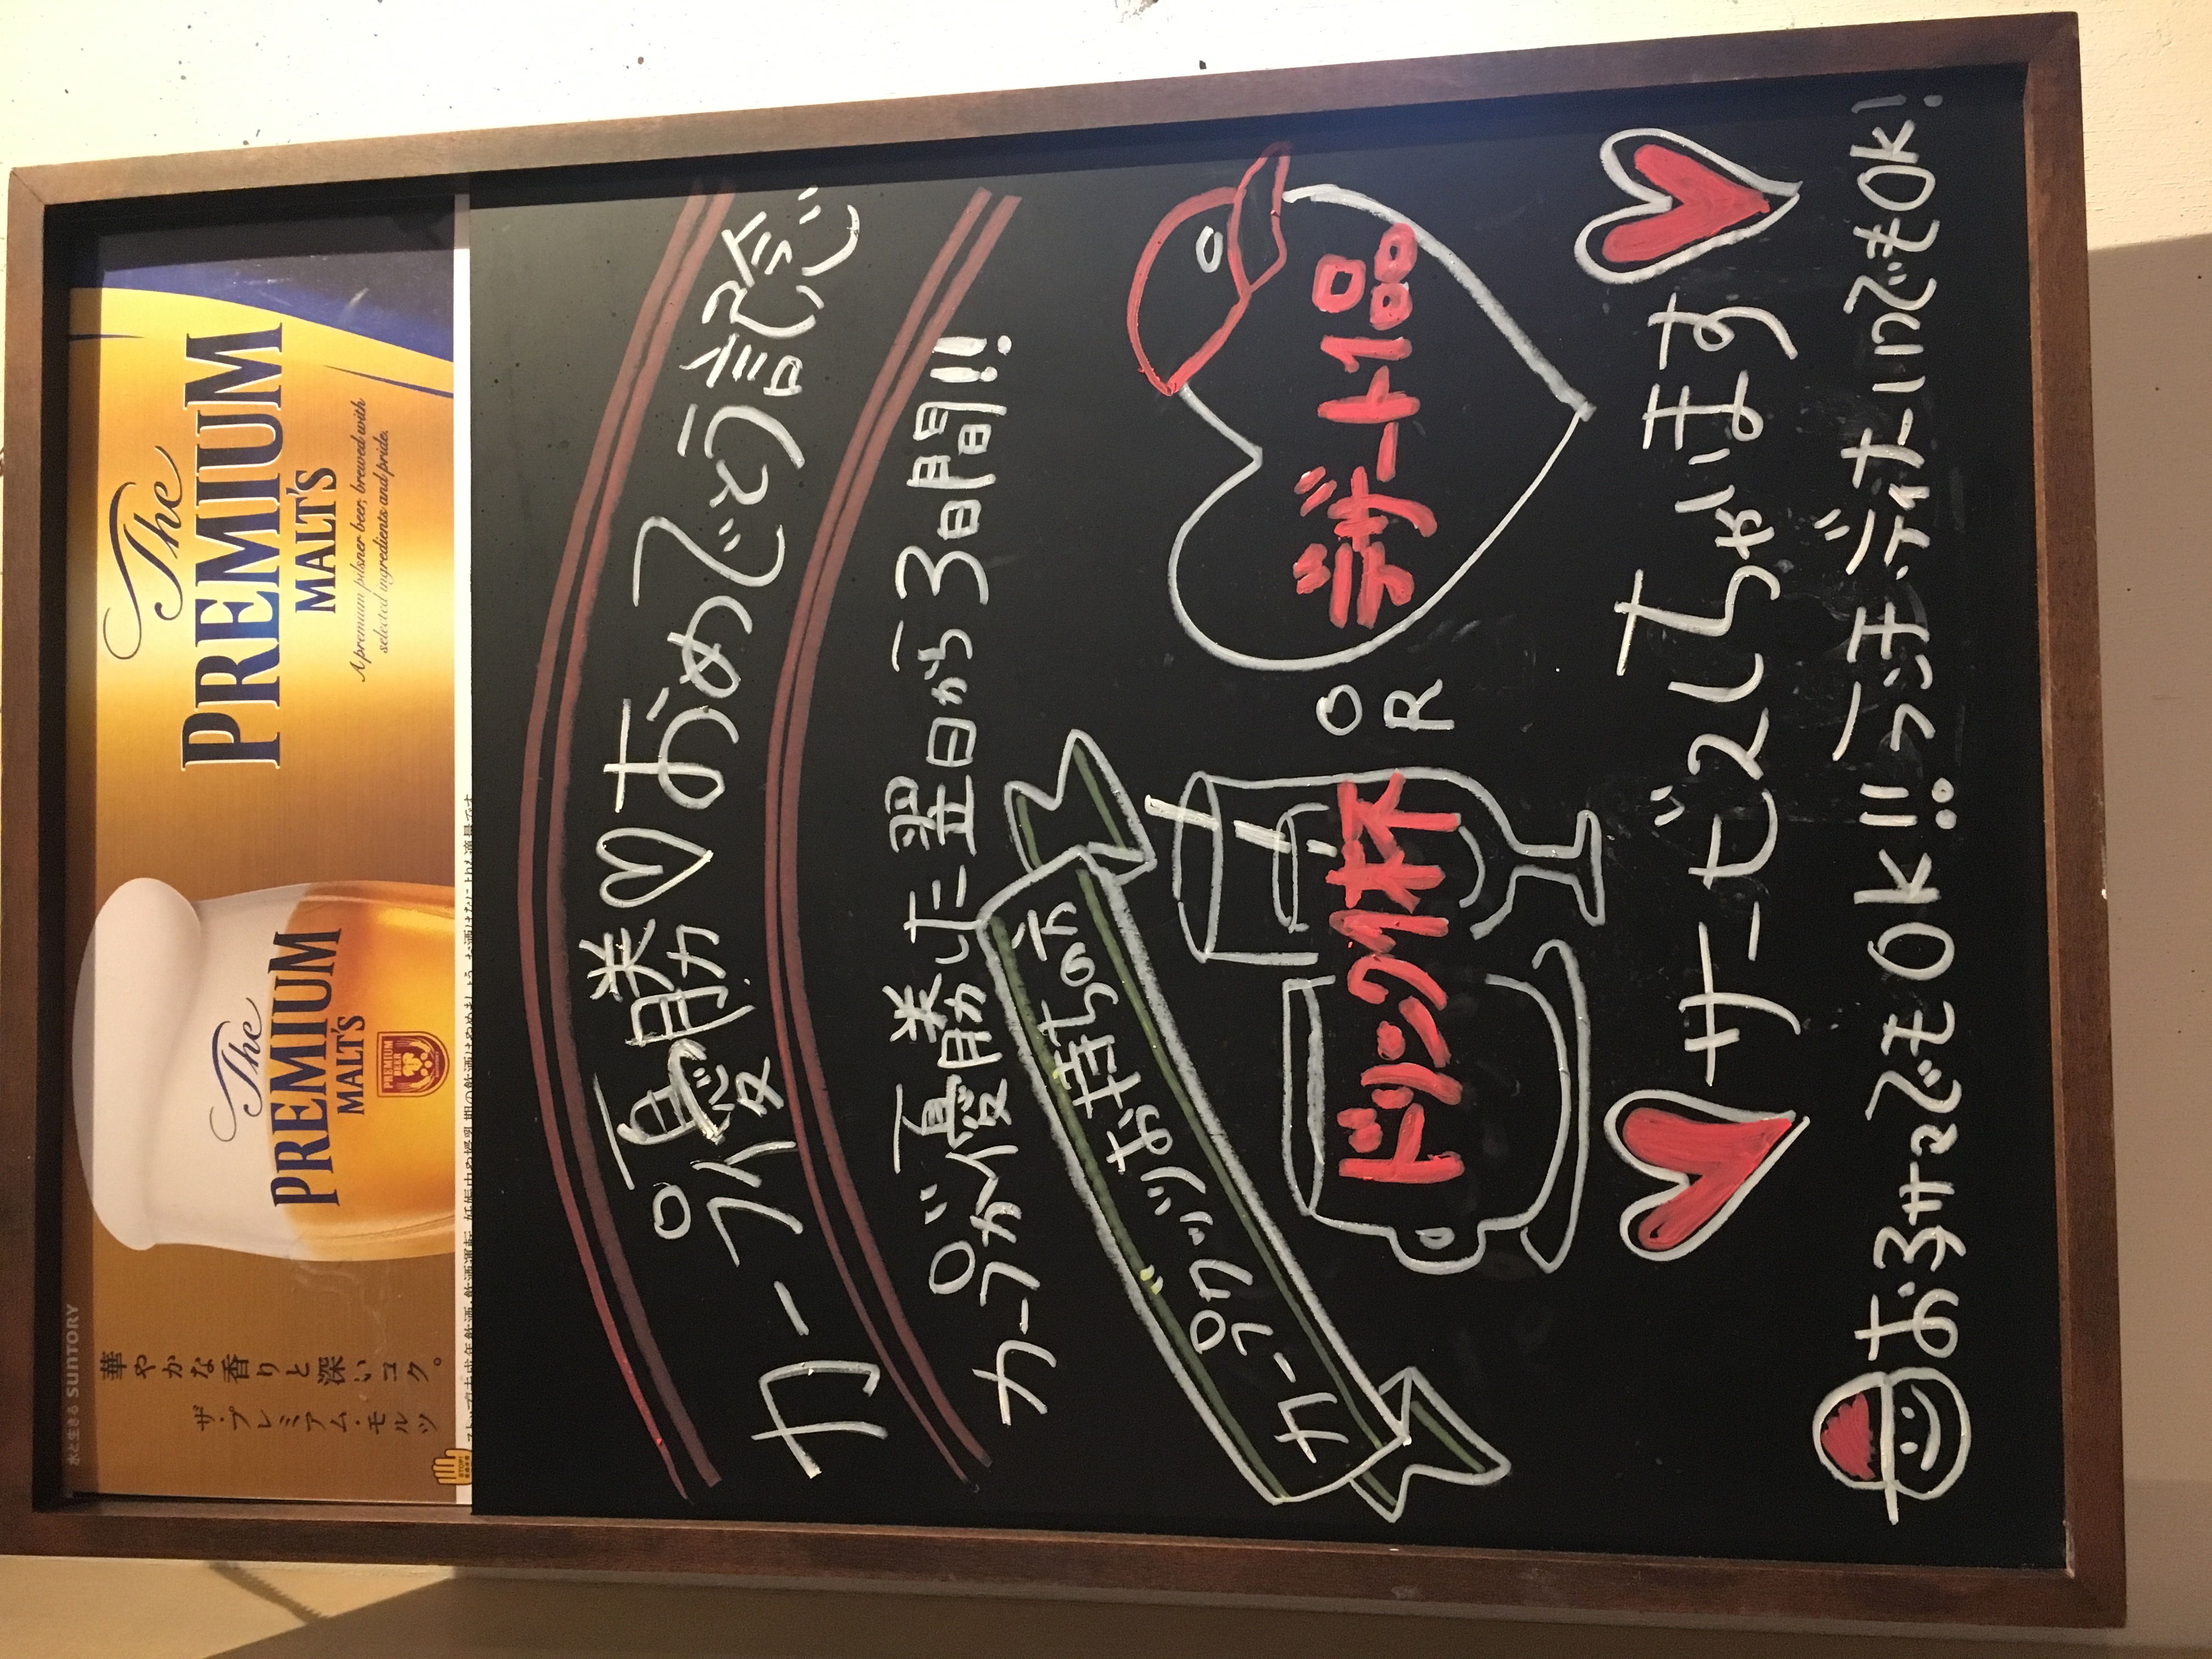 水と生きる SUNTORY
The
PREMIUM
MALT'S
A premium pilsner beer, brewed with
selected ingredients and pride.
華やかな香りと深いコク。
ザ・プレミアム・モルツ
The
PREMIUM
MALT'S
PREMIUM
BEER
カープ優勝♡おめでとう記念
カープが優勝した翌日から3日間!!
カープグッツお持ちの方
ドリンク1杯
OR
デザート1品
サービスしちゃいます
お子サマでもOK!!ランチ・ディナーいつでもOK!